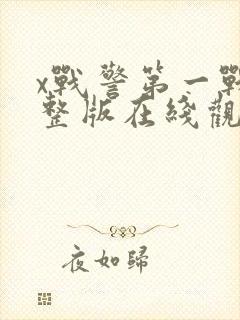 x戰警第一戰
整版在綫觀
夜如歸